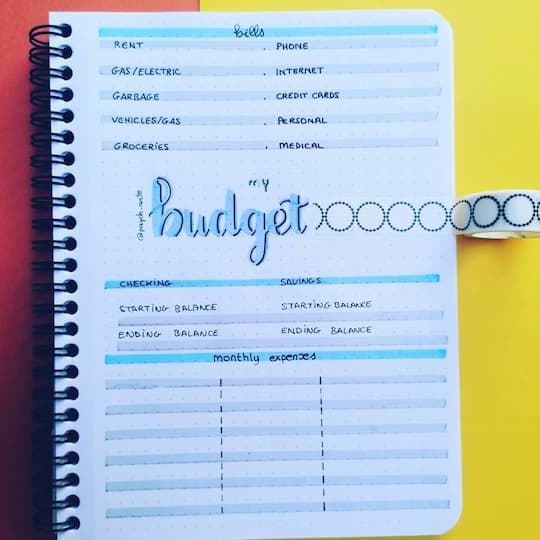 bills
RENT . PHONE
GAS/ELECTRIC INTERNET
GARBAGE . CREDIT CARDS
VEHICLES/GAS . PERSONAL
GROCERIES . MEDICAL
my
budget
CHECKING SAVINGS
STARTING BALANCE STARTING BALANCE
ENDING BALANCE ENDING BALANCE
monthly expenses